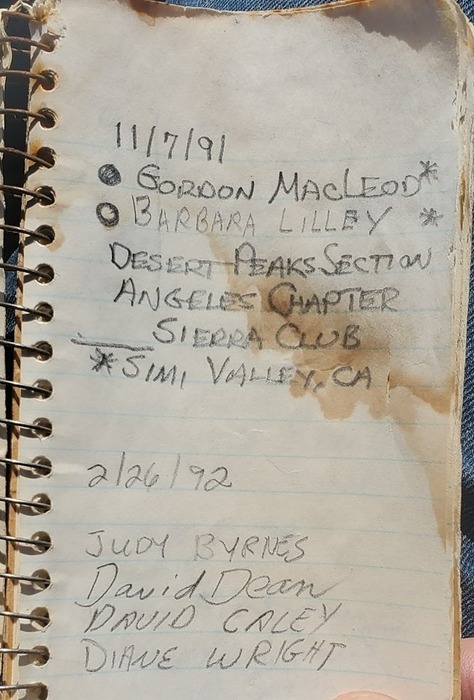 11/7/91
● GORDON MACLEOD*
○ BARBARA LILLEY *
DESERT PEAKS SECTION
ANGELES CHAPTER
SIERRA CLUB
*SIMI VALLEY, CA
2/26/92
JUDY BYRNES
David Dean
DAVID CALEY
DIANE WRIGHT